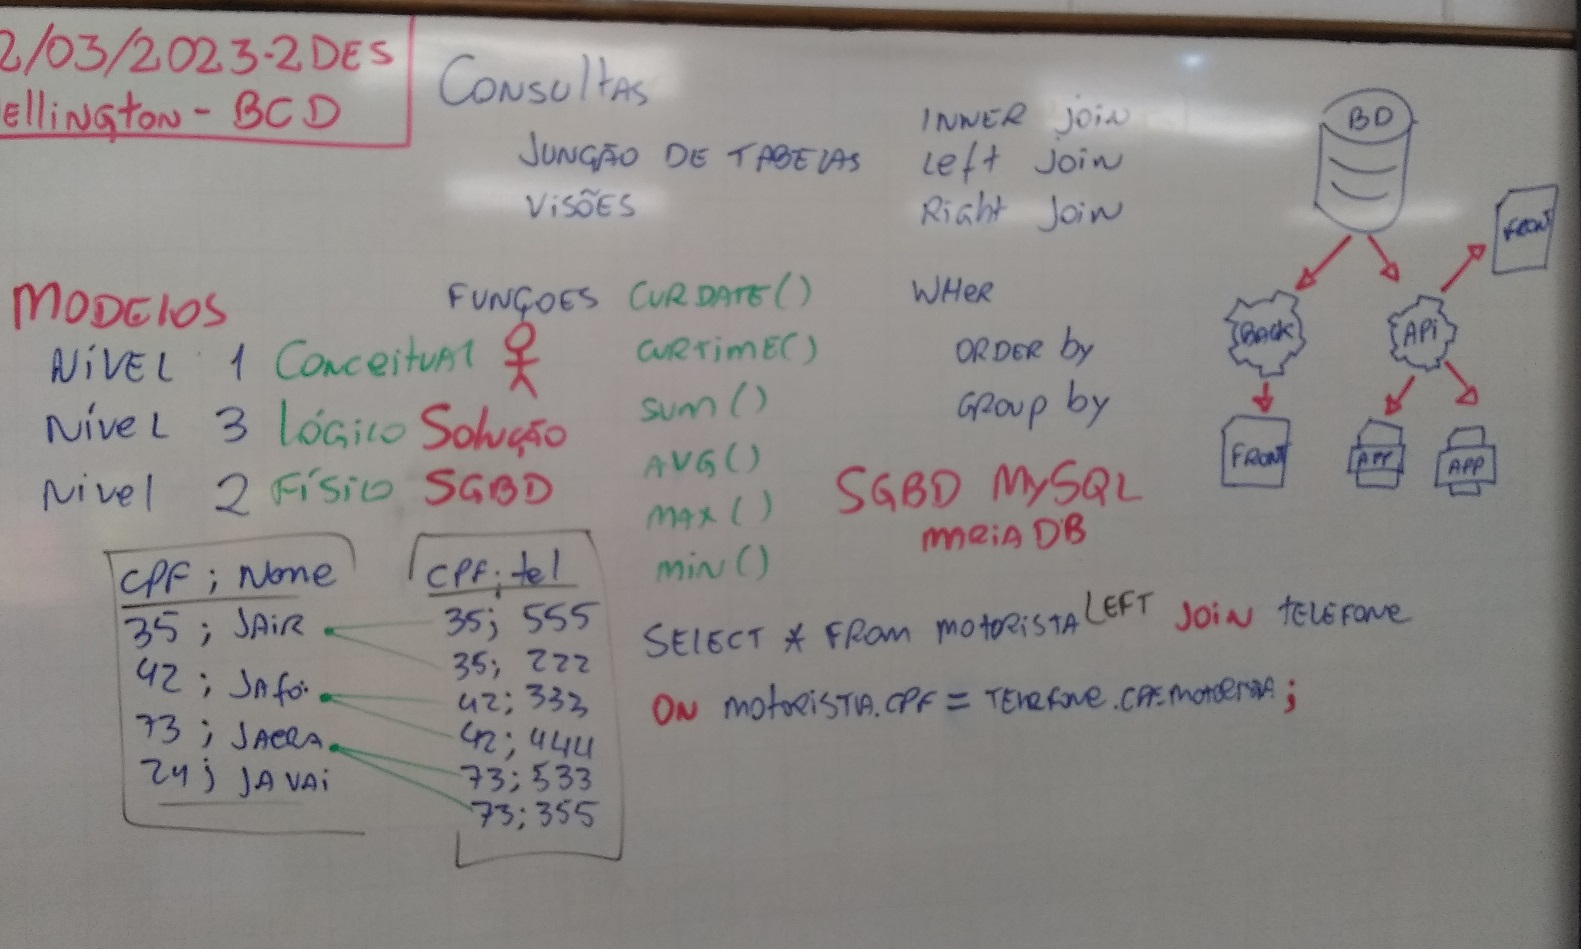 2/03/2023-2DES
ellington - BCD
Consultas
JUNÇÃO DE TABELAS
VISÕES
INNER join
Left join
Right join
BD
FRONT
BACK
API
FRONT
APP
APP
MODELOS
NÍVEL 1 Conceitual
Nível 3 Lógico Solução
Nivel 2 Físico SGBD
FUNÇOES CURDATE()
CURTIME()
SUM()
AVG()
MAX()
MIN()
WHER
ORDER by
GROUP by
SGBD MySQL
MARIA DB
CPF ; Nome
35 ; JAIR
42 ; JAFOI
73 ; JAERA
24 ; JAVAI
CPF ; tel
35; 555
35; 222
42; 333
42; 444
73; 533
73; 355
SELECT * FROM MOTORISTA LEFT JOIN TELEFONE
ON MOTORISTA.CPF = TELEFONE.CPF.MOTORISTA ;